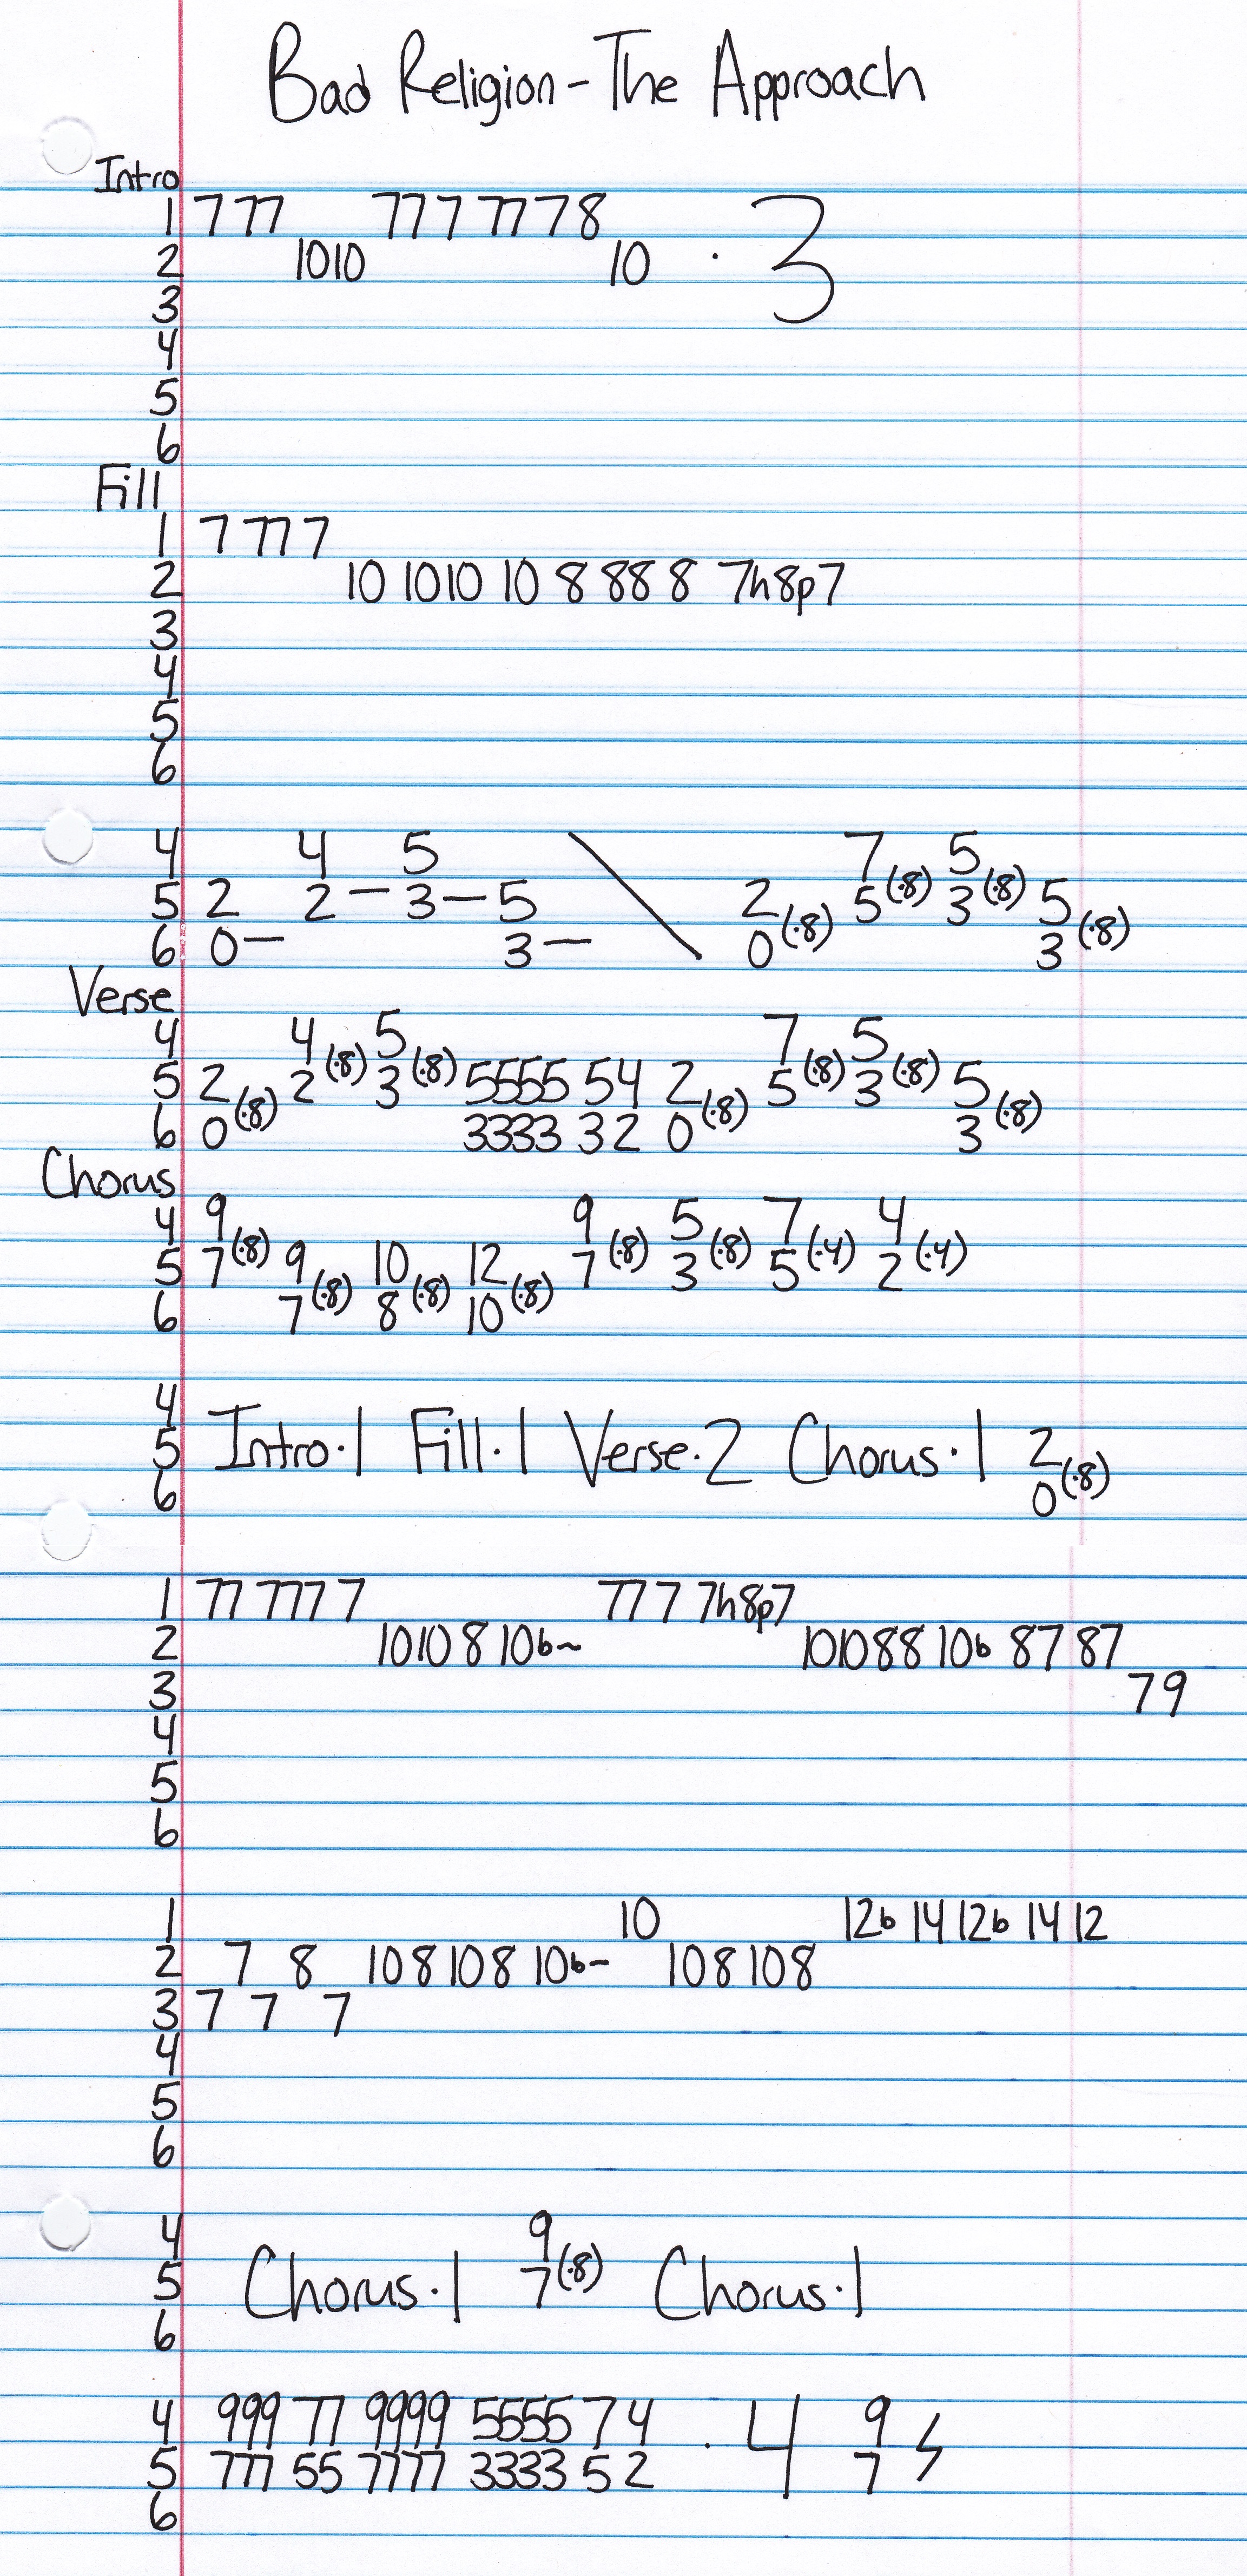 Bad Religion - The Approach
Intro
1 777 777 77 78
2 1010 10 · 3
3
4
5
6
Fill
1 7 777
2 10 1010 10 8 88 8 7h8p7
3
4
5
6
4 4 5 \ 7 5
5 2 2 — 3 — 5 2 (·8) 5 (·8) 3 (·8) 5
6 0 — 3 — 0 3 (·8)
Verse
4 4 5 7 5
5 2 2 (·8) 3 (·8) 5555 54 2 5 (·8) 3 (·8) 5
6 0 (·8) 3333 32 0 (·8) 3 (·8)
Chorus
4 9 9 5 7 4
5 7 (·8) 9 10 12 7 (·8) 3 (·8) 5 (·4) 2 (·4)
6 7 (·8) 8 (·8) 10 (·8)
4
5 Intro·1 Fill·1 Verse·2 Chorus·1 2
6 0 (·8)
1 77 777 7 77 7 7h8p7
2 1010 8 10b~ 101088 10b 87 87
3 79
4
5
6
1 10 12b 14 12b 14 12
2 7 8 108108 10b~ 108108
3 7 7 7
4
5
6
4 9
5 Chorus·1 7 (·8) Chorus·1
6
4 999 77 9999 5555 74 · 4 9
5 777 55 7777 3333 52 7
6